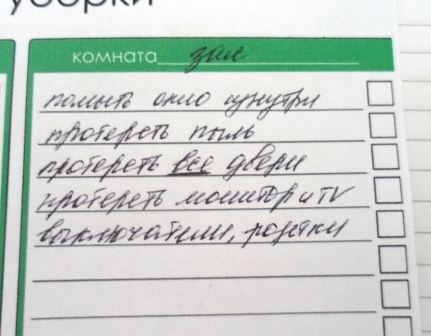 уборки
комната зал
помыть окно изнутри
протереть пыль
протереть все двери
протереть монитор и TV
выключатели, розетки